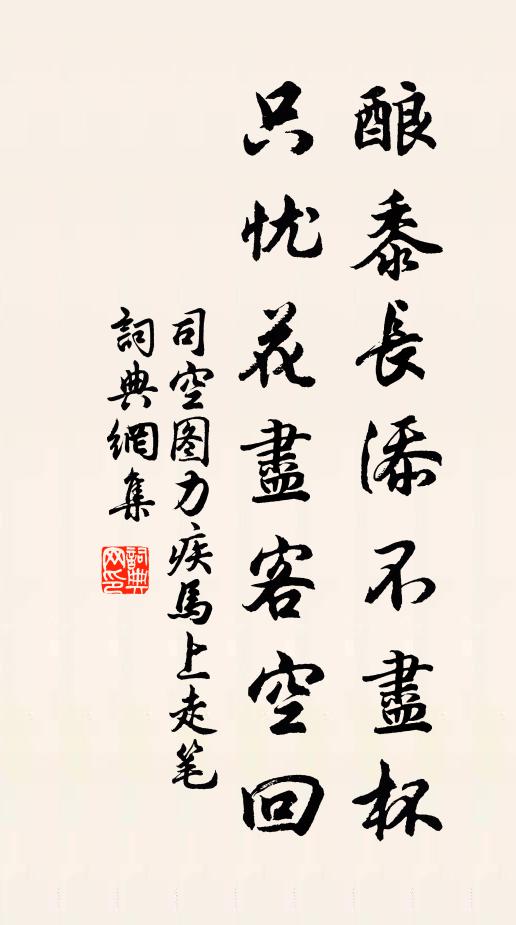 酿黍長添不盡杯
只忧花盡客空回
司空图力疾馬上走笔
詞典網集
詞典网印